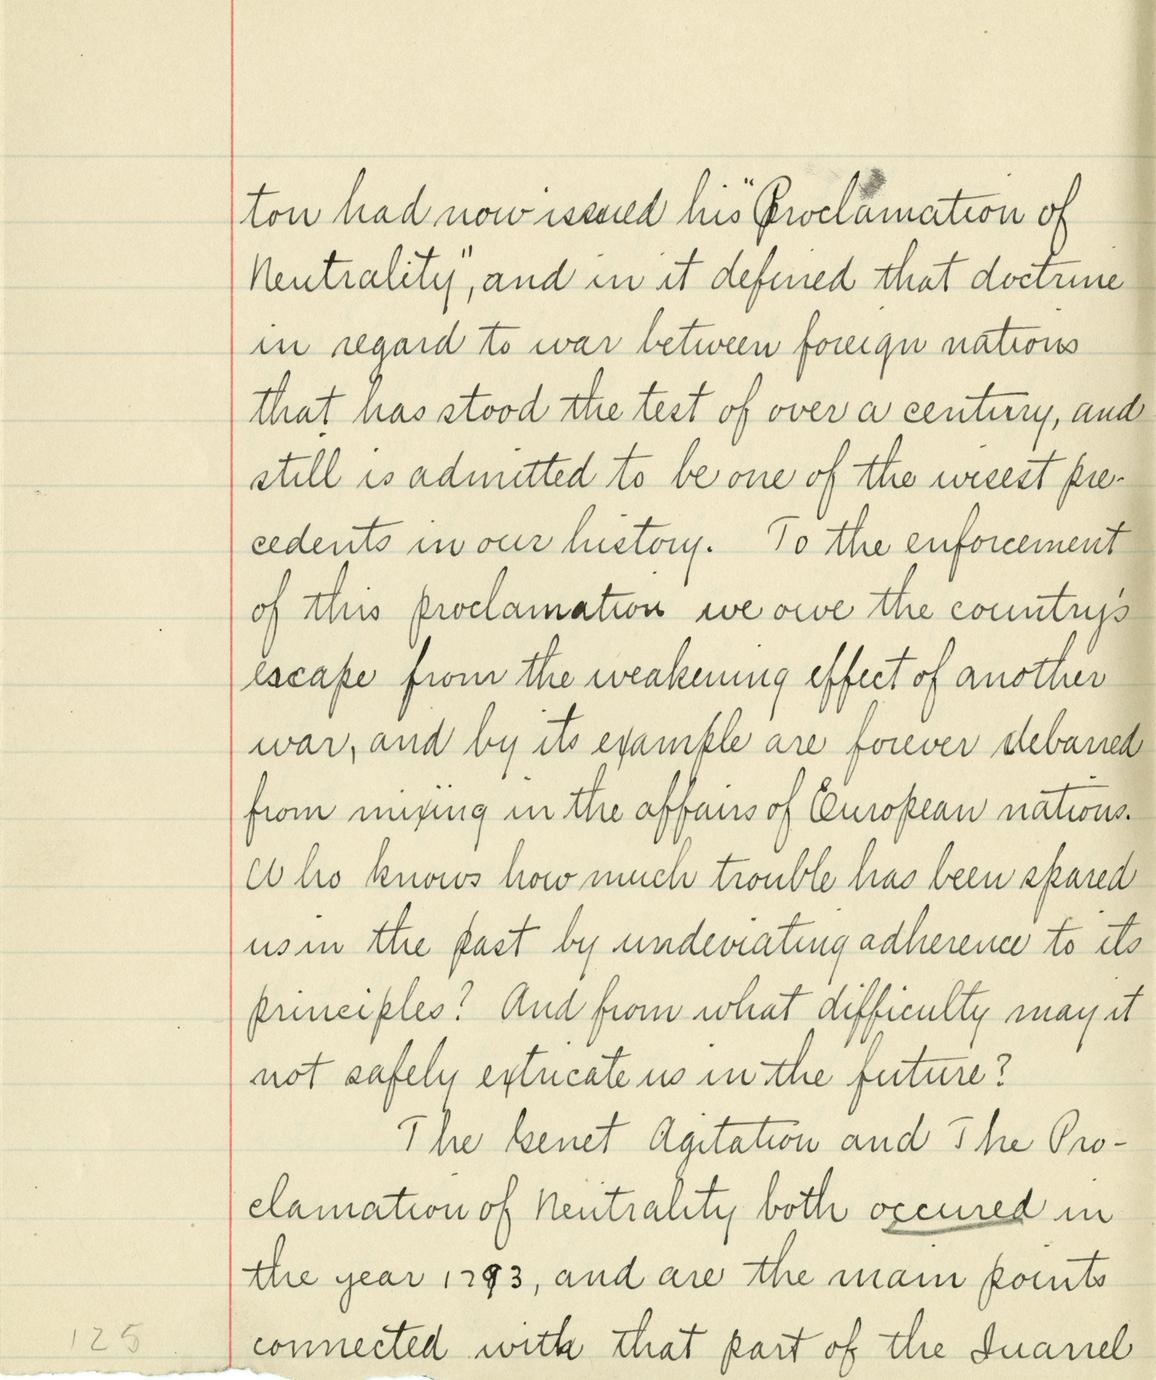 ton had now issued his "Proclamation of
Neutrality", and in it defined that doctrine
in regard to war between foreign nations
that has stood the test of over a century, and
still is admitted to be one of the wisest pre-
cedents in our history. To the enforcement
of this proclamation we owe the country's
escape from the weakening effect of another
war, and by its example are forever debarred
from mixing in the affairs of European nations.
Who knows how much trouble has been spared
us in the past by undeviating adherence to its
principles? And from what difficulty may it
not safely extricate us in the future?
The Genet Agitation and The Pro-
clamation of Neutrality both occured in
the year 1793, and are the main points
connected with that part of the Quarrel
125